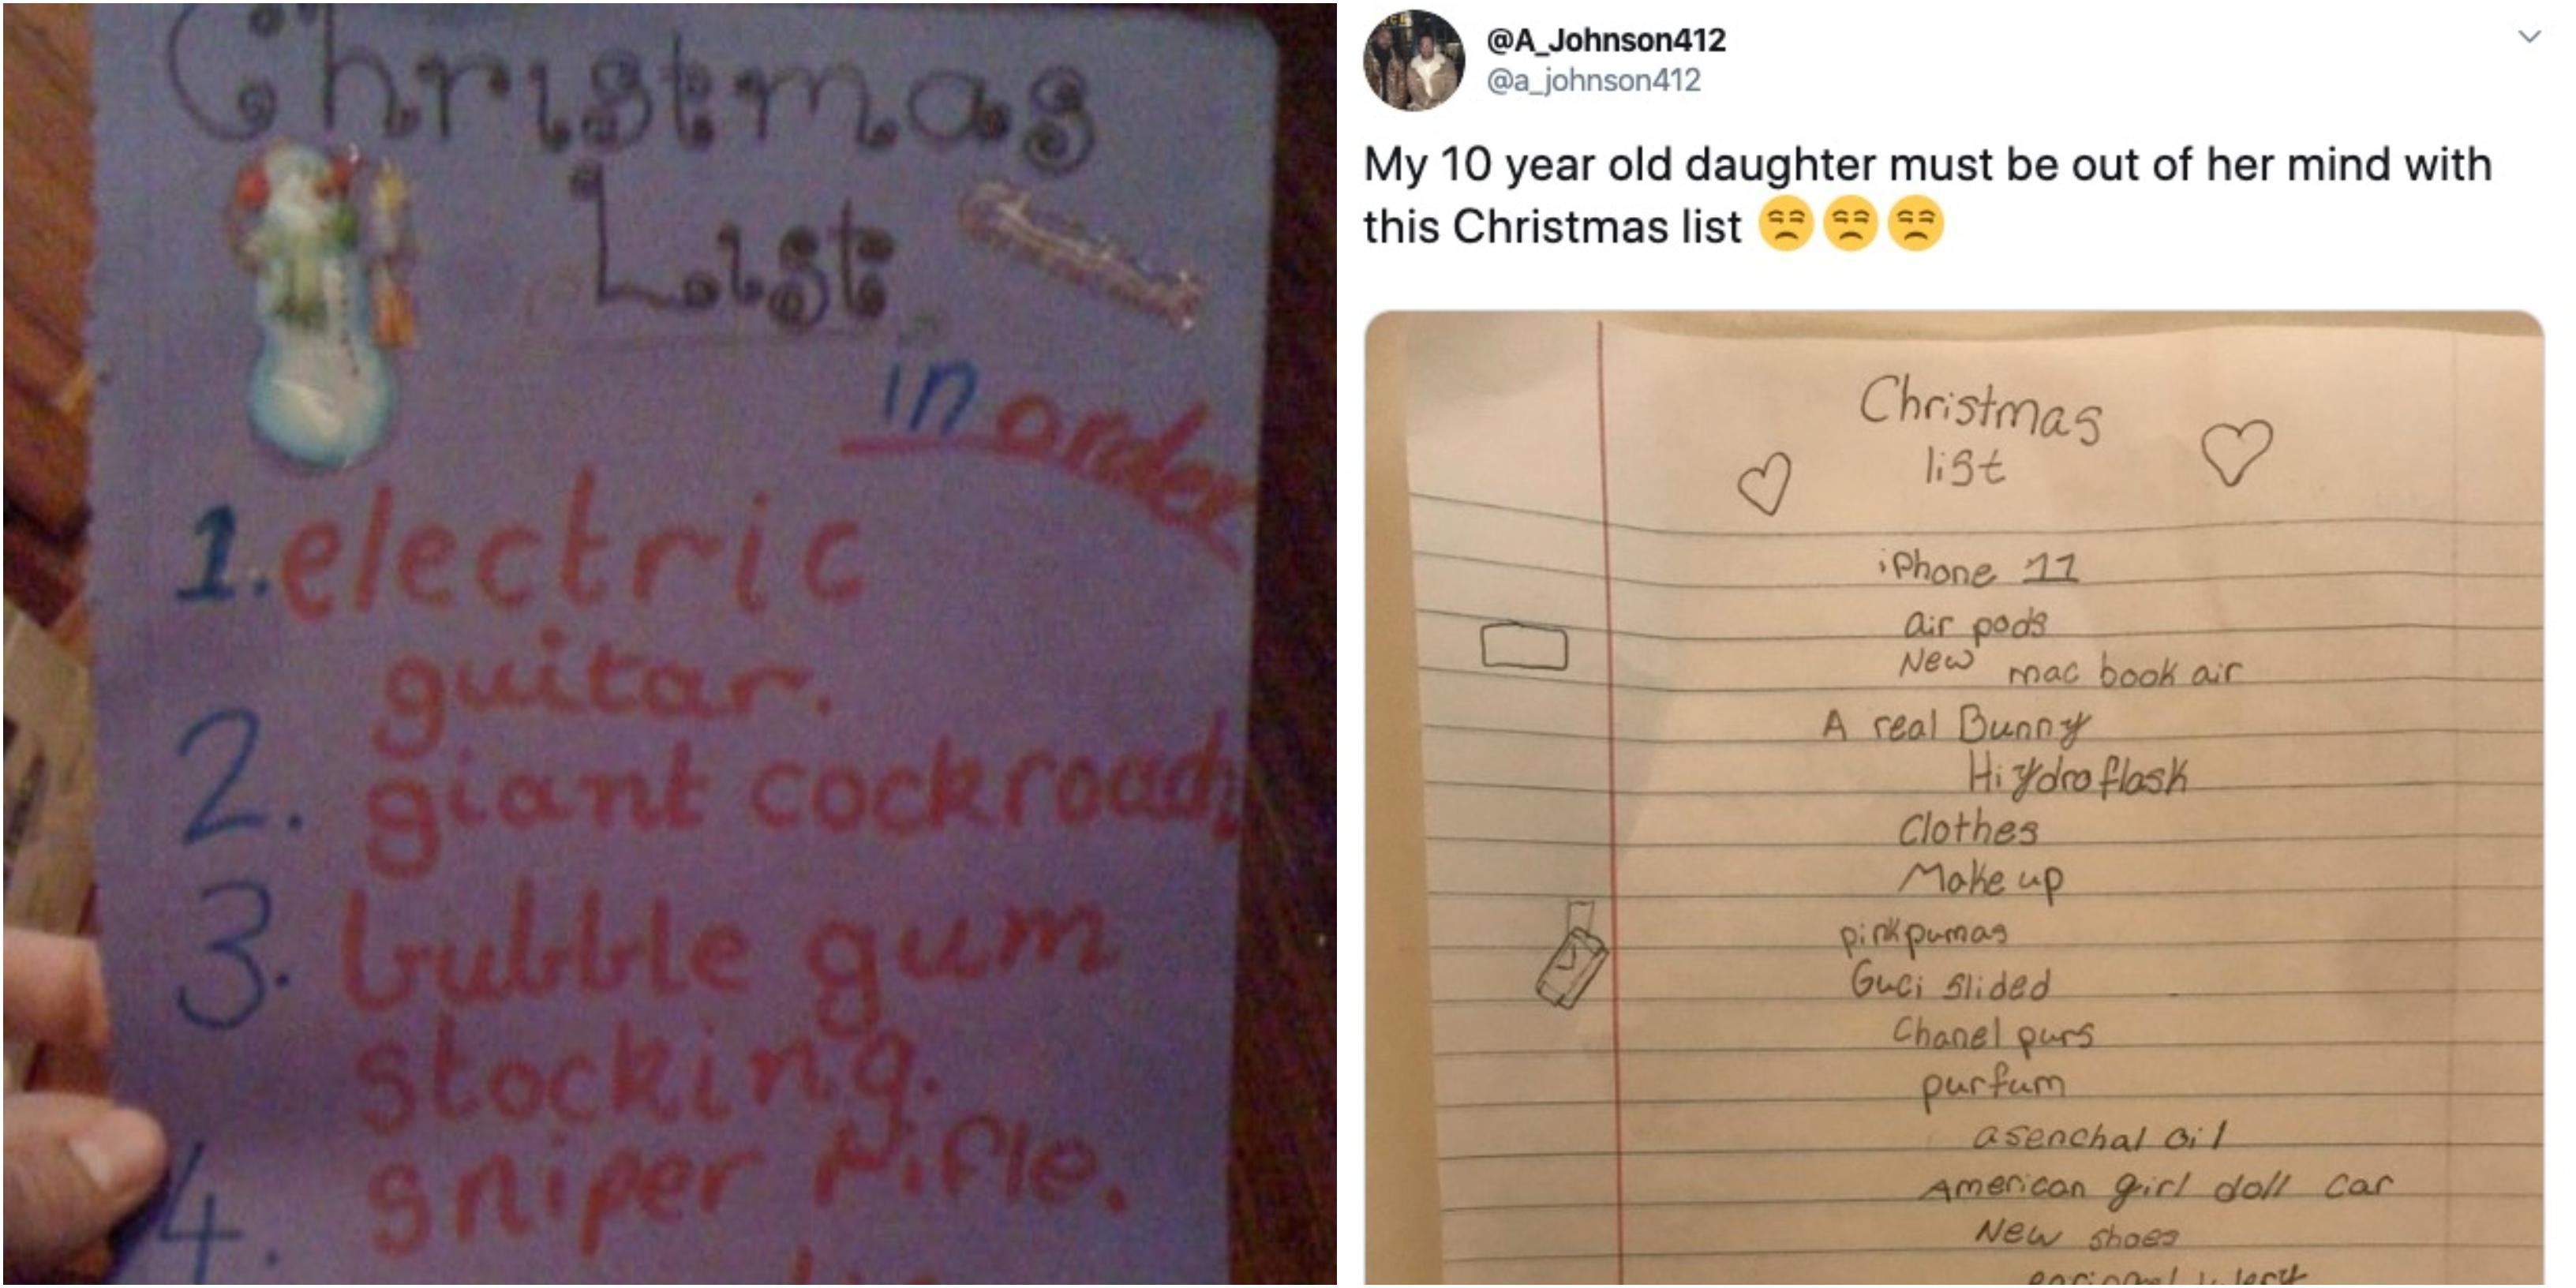 Christmas
List
in order
1. electric
guitar.
2. giant cockroach.
3. bubble gum
stocking.
4. sniper rifle.
@A_Johnson412
@a_johnson412
My 10 year old daughter must be out of her mind with
this Christmas list 😒😒😒
Christmas
list
iPhone 11
air pods
New mac book air
A real Bunny
Hiydroflask
Clothes
Make up
pink pumas
Guci slided
Chanel purs
purfum
asenchal oil
American girl doll car
New shoes